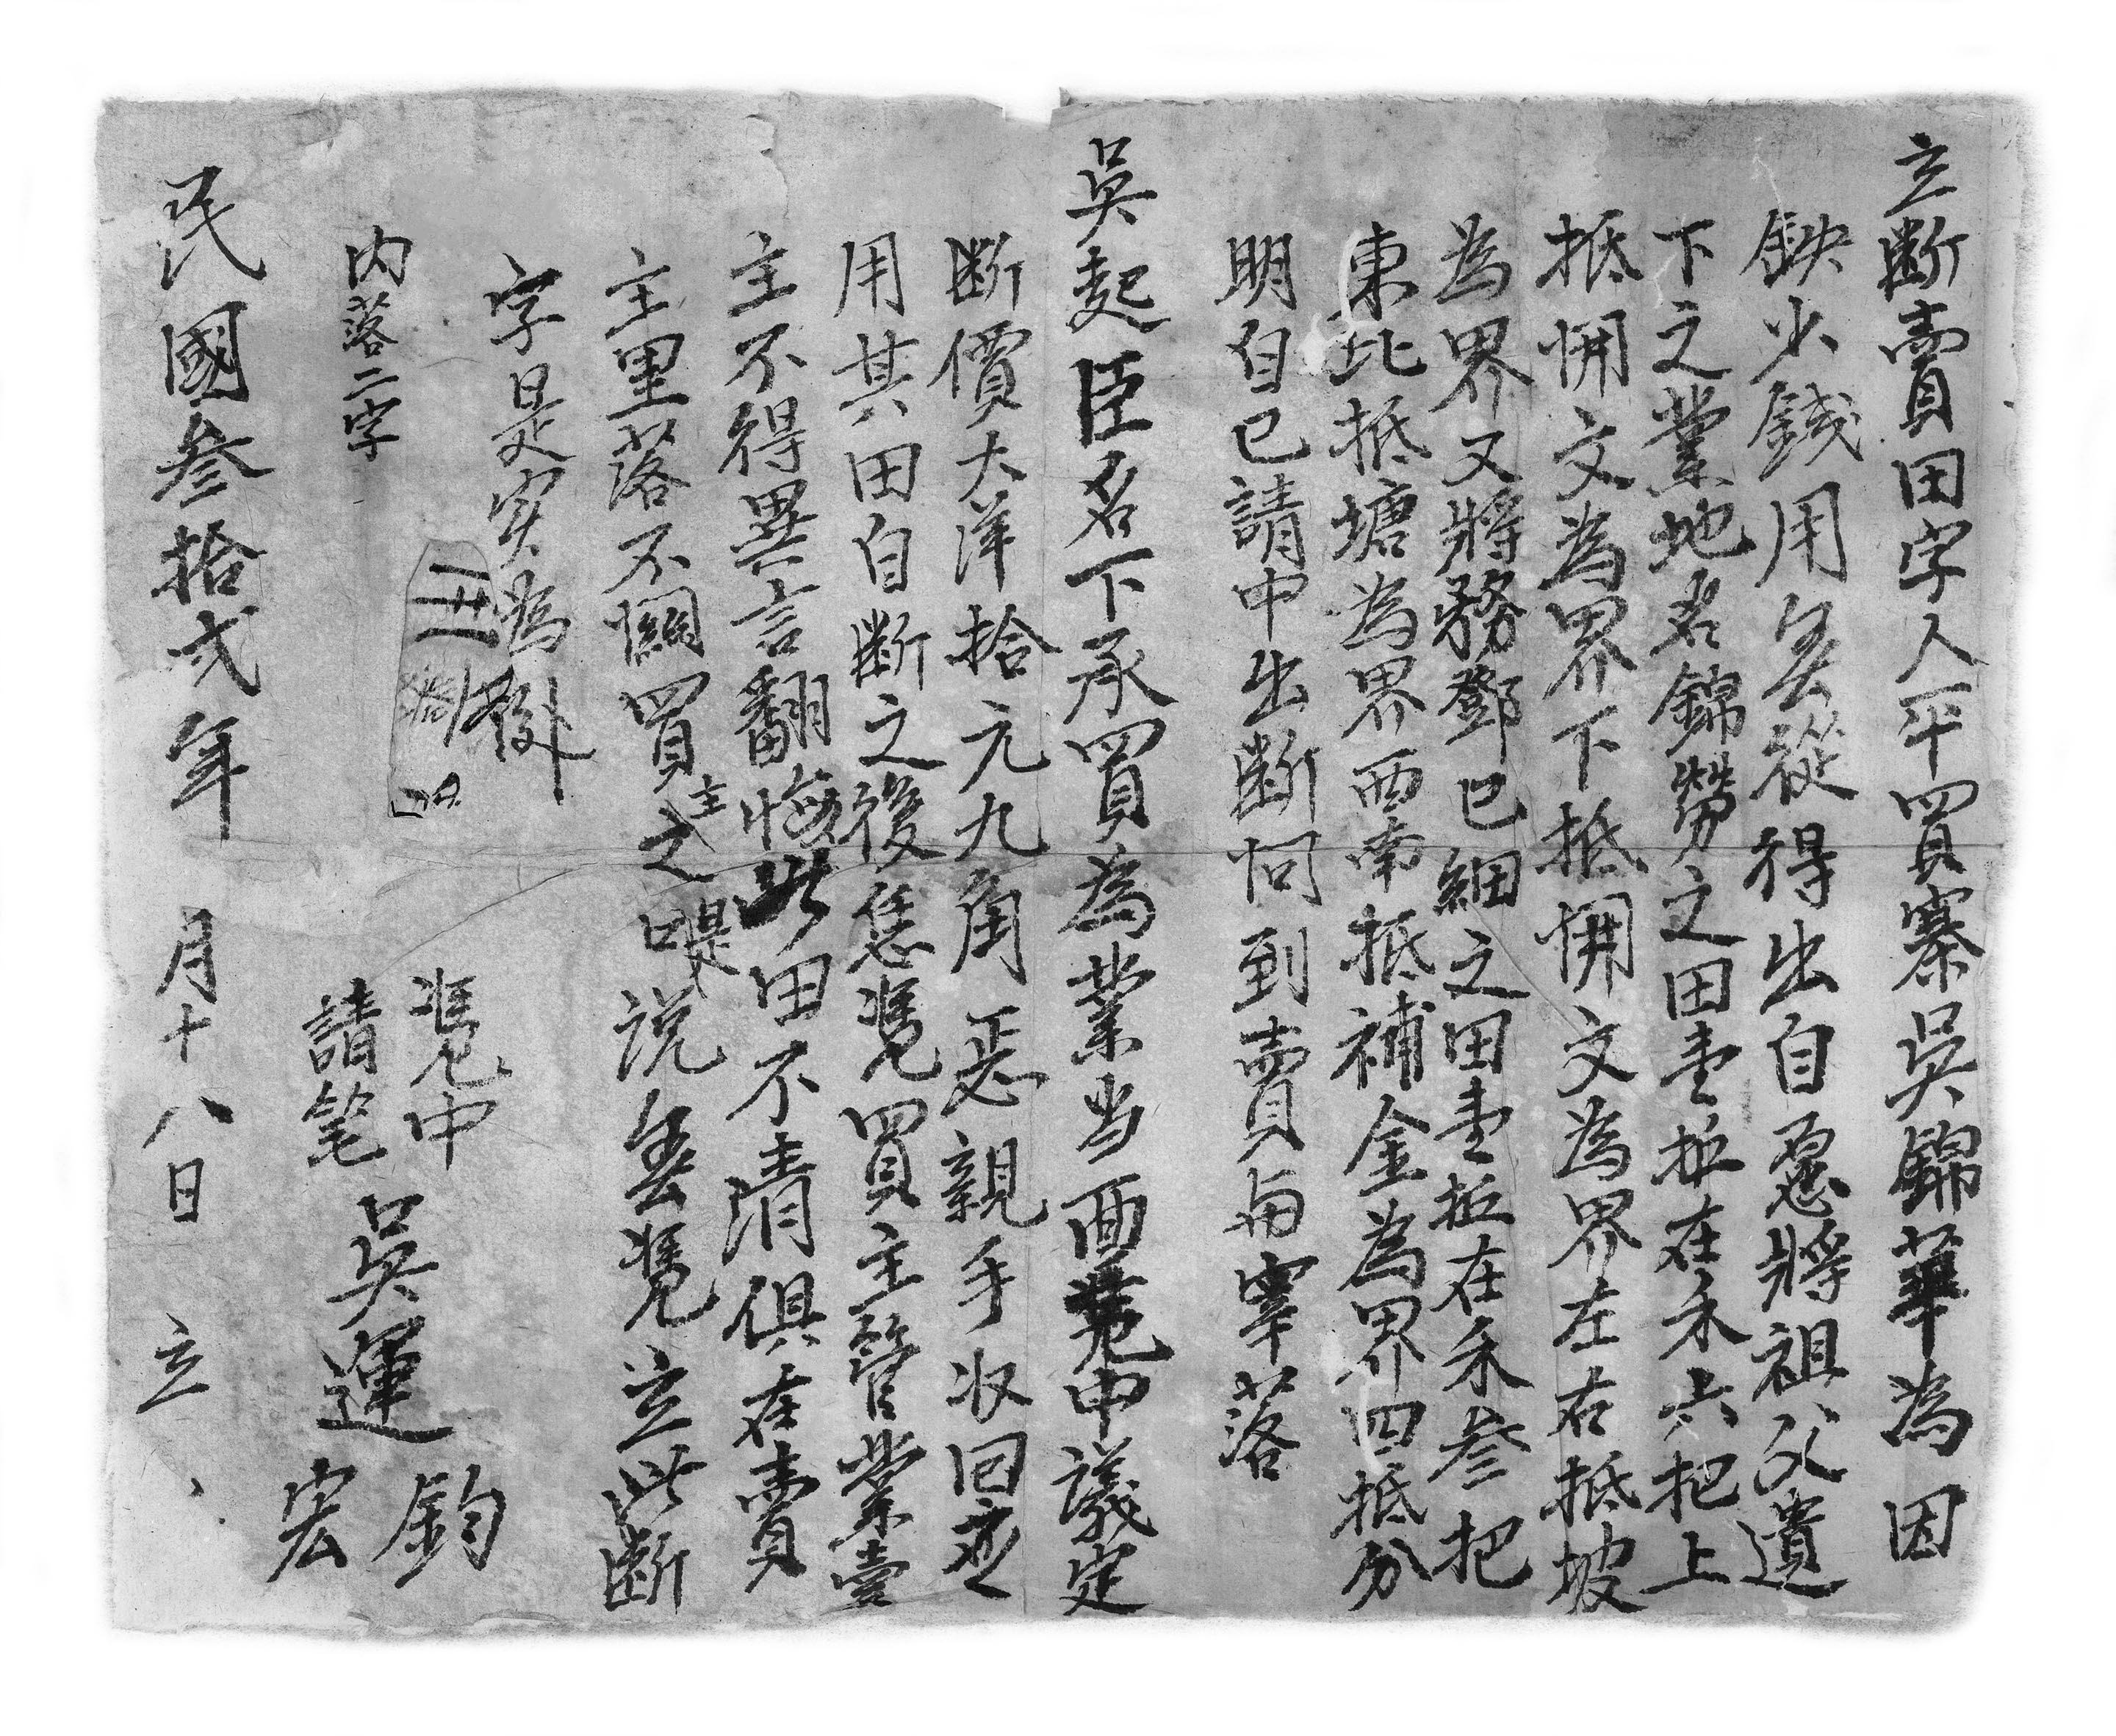 立断賣田字人平買寨吳錦華為因
鈌少錢用無從得出自愿將祖父遺
下之業地名錦勞之田壹坵在禾六把上
抵㤓文為界下抵㤓文為界左右抵坡
為界又將務鄧巳細之田壹坵在禾叁把
東北抵塘為界西南抵補金為界四抵分
明自己請中出断问到賣与寨落
吳起臣名下承買為業当面凴中議定
断價大洋拾元九角正親手收回应
用其田自断之後恁凴買主管業壹
主不得異言翻悔此田不清俱在賣
主里落不関買主之㖷说無凴立此断
字是实為掛
内落二字
凴中
請笔
吳運
鈞
宏
民國叁拾弍年 月十八日 立